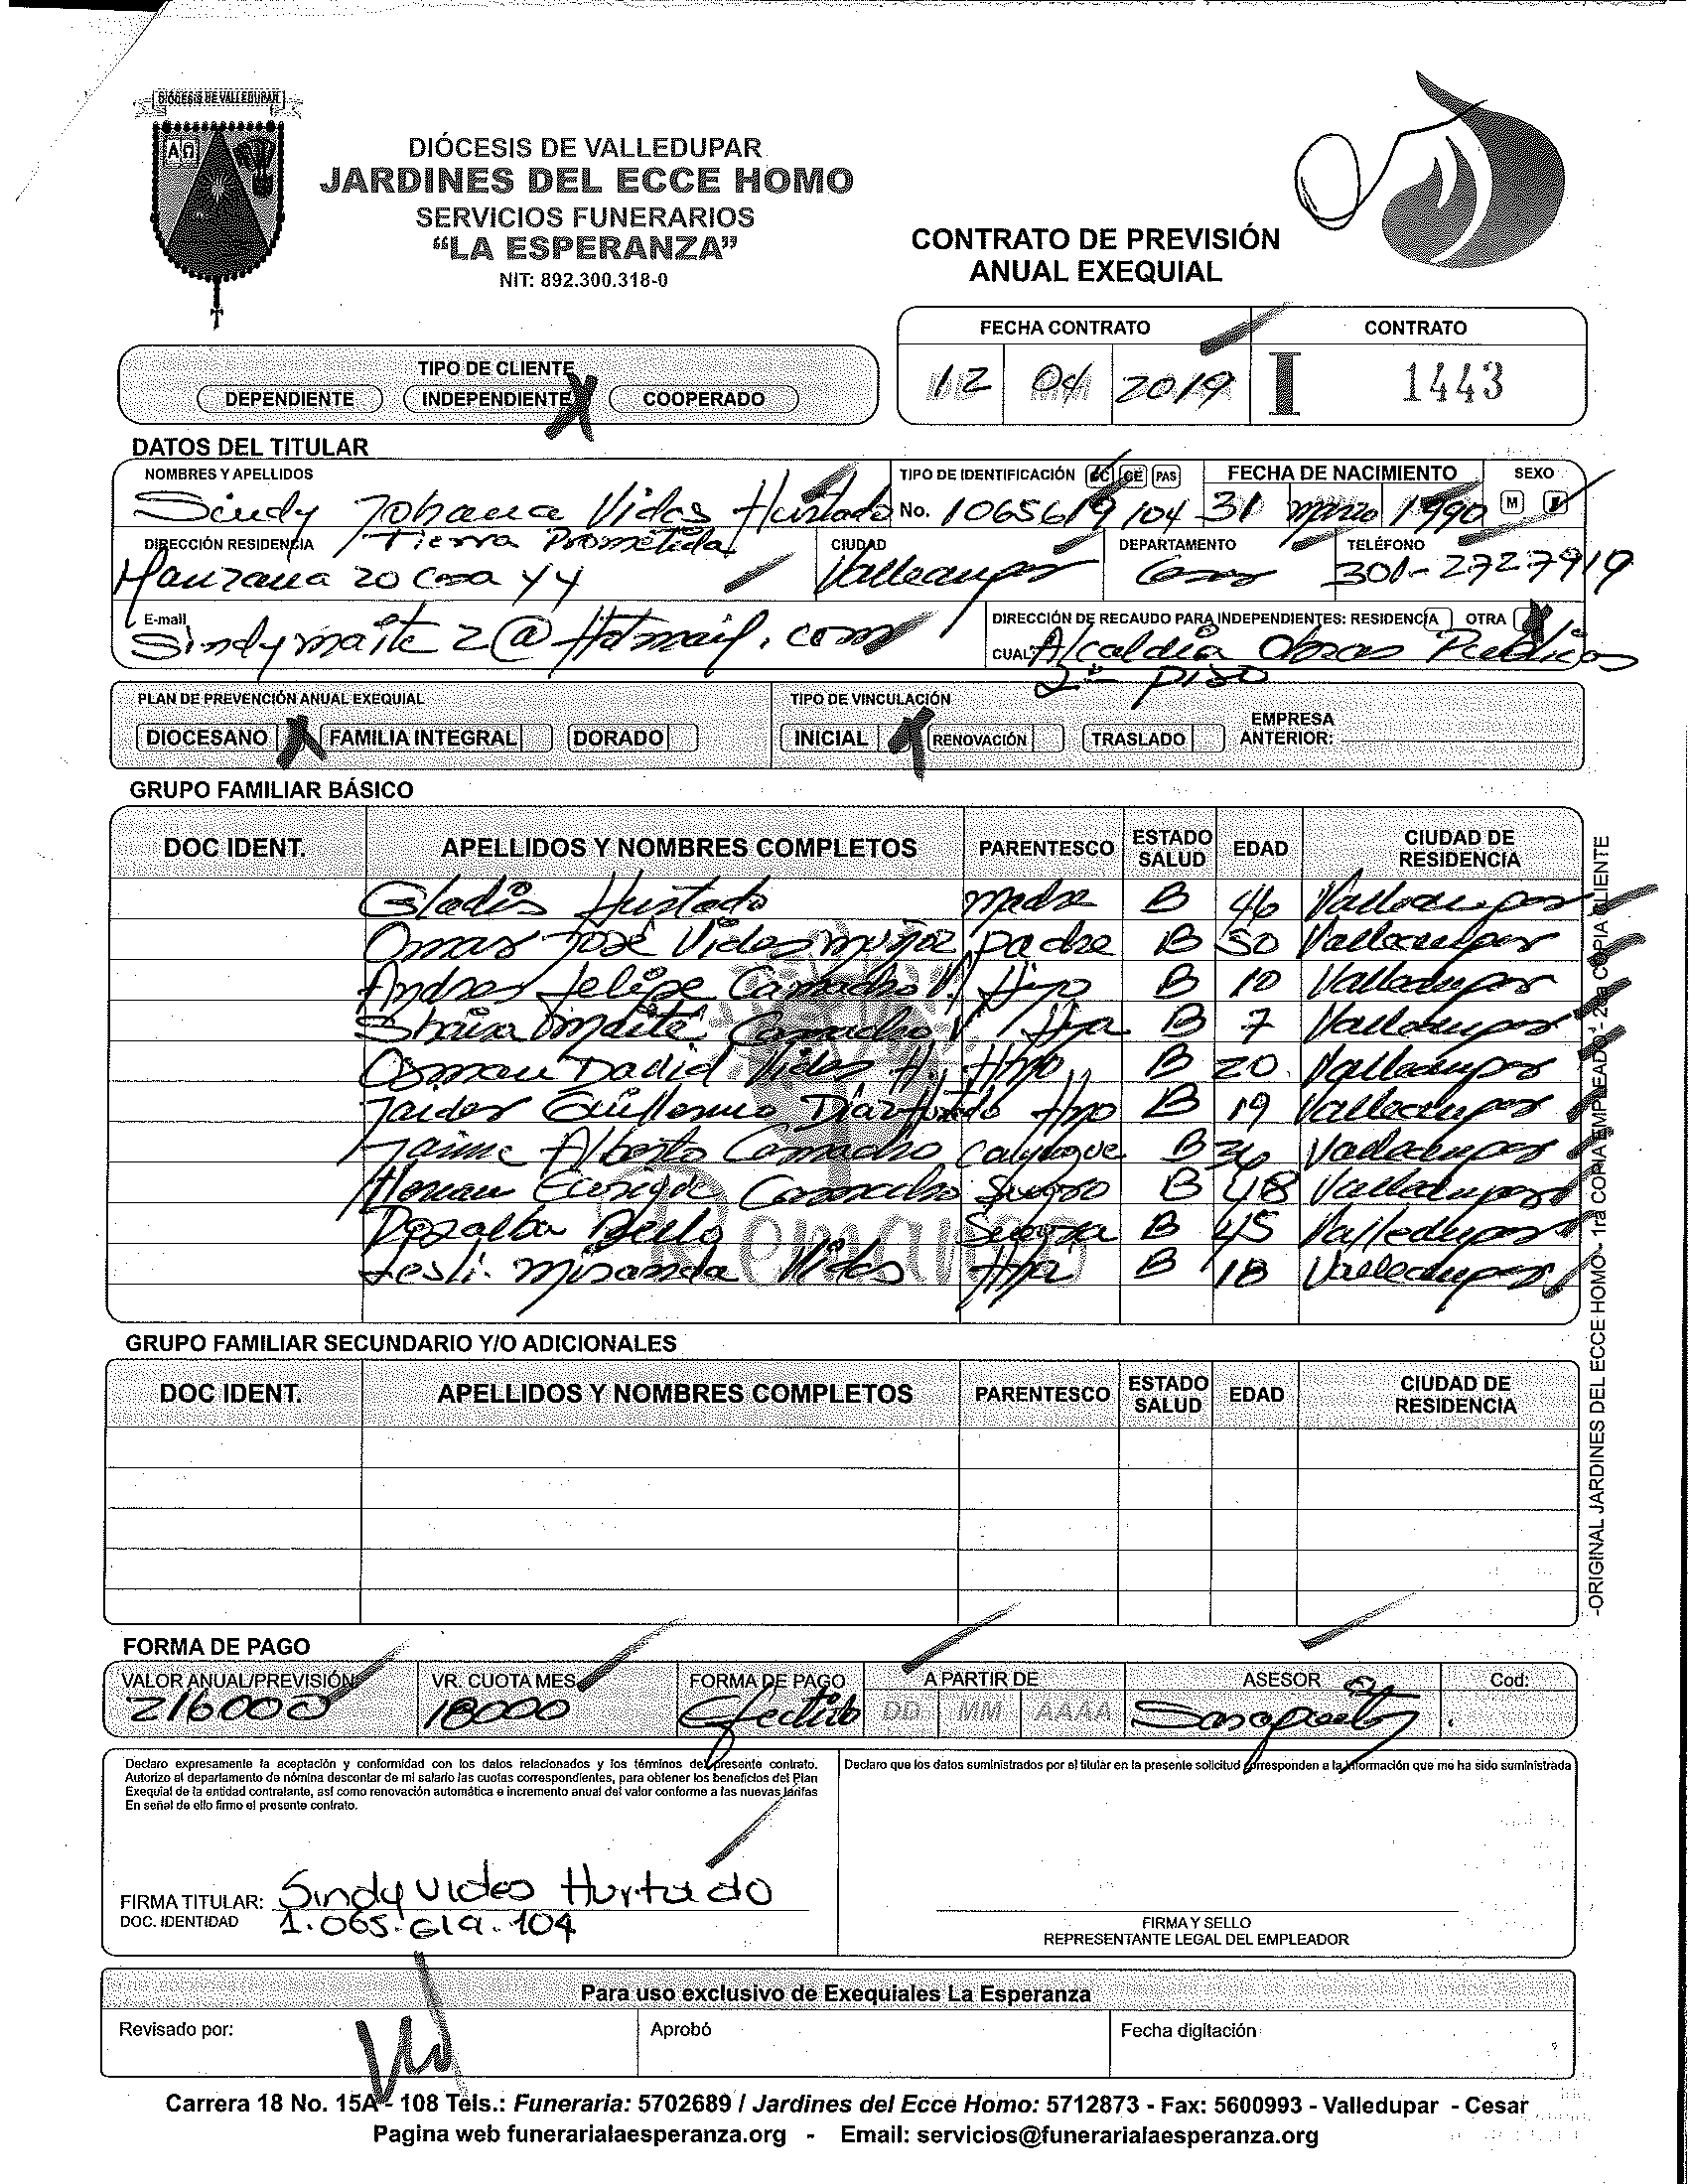 DIÓCESIS DE VALLEDUPAR
ΑΩ
DIÓCESIS DE VALLEDUPAR
JARDINES DEL ECCE HOMO
SERVICIOS FUNERARIOS
"LA ESPERANZA"
NIT: 892.300.318-0
CONTRATO DE PREVISIÓN
ANUAL EXEQUIAL
FECHA CONTRATO CONTRATO
12 04 2019 I 1443
TIPO DE CLIENTE
DEPENDIENTE INDEPENDIENTE X COOPERADO
DATOS DEL TITULAR
NOMBRES Y APELLIDOS TIPO DE IDENTIFICACIÓN CC CE PAS FECHA DE NACIMIENTO SEXO
Sindy Johana Vides Hurtado No. 1065619104 31 marzo 1990 M F
DIRECCIÓN RESIDENCIA Tierra Prometida CIUDAD DEPARTAMENTO TELÉFONO
Manzana 20 Casa 44 Valledupar Cesar 301-2727919
E-mail DIRECCIÓN DE RECAUDO PARA INDEPENDIENTES: RESIDENCIA OTRA X
Sindymaite2@Hotmail.com CUAL Alcaldia Obras Publicas
2do piso
PLAN DE PREVENCIÓN ANUAL EXEQUIAL TIPO DE VINCULACIÓN
DIOCESANO X FAMILIA INTEGRAL DORADO INICIAL X RENOVACIÓN TRASLADO EMPRESA ANTERIOR:
GRUPO FAMILIAR BÁSICO
DOC IDENT. APELLIDOS Y NOMBRES COMPLETOS PARENTESCO ESTADO SALUD EDAD CIUDAD DE RESIDENCIA
Gladis Hurtado madre B 46 Valledupar
Omar José Vides muñoz padre B 50 Valledupar
Andres Felipe Camacho V. Hijo B 10 Valledupar
maite Camacho V Hija B 7 Valledupar
Osman David Vides H. Hmo B 20 Valledupar
Jaider Guillermo Diaz Hurtado Hmo B 19 Valledupar
Jaime Alberto Camacho B Valledupar
Hernan Enrique Camacho Suegro B 48 Valledupar
Rosalba Bello Suegra B 45 Valledupar
Lesli miranda Vides B 18 Valledupar
Remanso
GRUPO FAMILIAR SECUNDARIO Y/O ADICIONALES
DOC IDENT. APELLIDOS Y NOMBRES COMPLETOS PARENTESCO ESTADO SALUD EDAD CIUDAD DE RESIDENCIA
-ORIGINAL JARDINES DEL ECCE HOMO - 1ra COPIA EMPLEADO - 2da COPIA CLIENTE
FORMA DE PAGO
VALOR ANUAL/PREVISIÓN VR. CUOTA MES FORMA DE PAGO A PARTIR DE ASESOR Cod:
216000 18000 Efectivo DD MM AAAA
Declaro expresamente la aceptación y conformidad con los datos relacionados y los términos del presente contrato.
Autorizo al departamento de nómina descontar de mi salario las cuotas correspondientes, para obtener los beneficios del Plan
Exequial de la entidad contratante, así como renovación automática e incremento anual del valor conforme a las nuevas tarifas
En señal de ello firmo el presente contrato.
Declaro que los datos suministrados por el titular en la presente solicitud corresponden a la información que me ha sido suministrada
FIRMA TITULAR: Sindy Vides Hurtado
DOC. IDENTIDAD 1.065.619.104
FIRMA Y SELLO
REPRESENTANTE LEGAL DEL EMPLEADOR
Para uso exclusivo de Exequiales La Esperanza
Revisado por: Aprobó Fecha digitación
Carrera 18 No. 15A - 108 Tels.: Funeraria: 5702689 / Jardines del Ecce Homo: 5712873 - Fax: 5600993 - Valledupar - Cesar
Pagina web funerarialaesperanza.org - Email: servicios@funerarialaesperanza.org